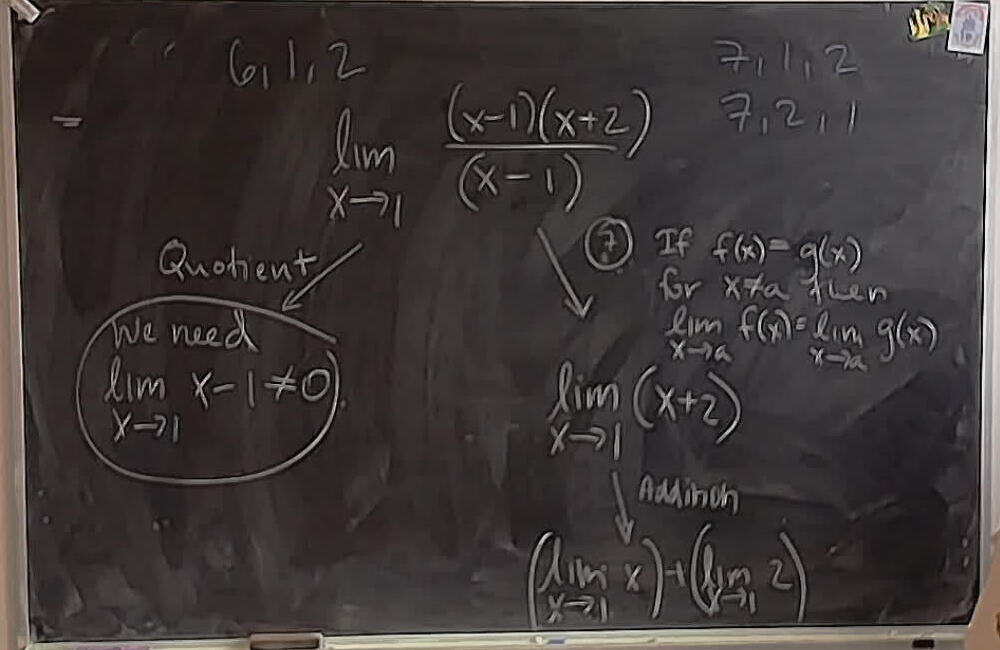 6, 1, 2
7, 1, 2
7, 2, 1
lim x→1 (x-1)(x+2) / (x-1)
Quotient
We need
lim x→1 x-1≠0
⑦ If f(x)=g(x)
for x≠a then
lim x→a f(x)=lim x→a g(x)
lim x→1 (x+2)
Addition
(lim x→1 x)+(lim x→1 2)